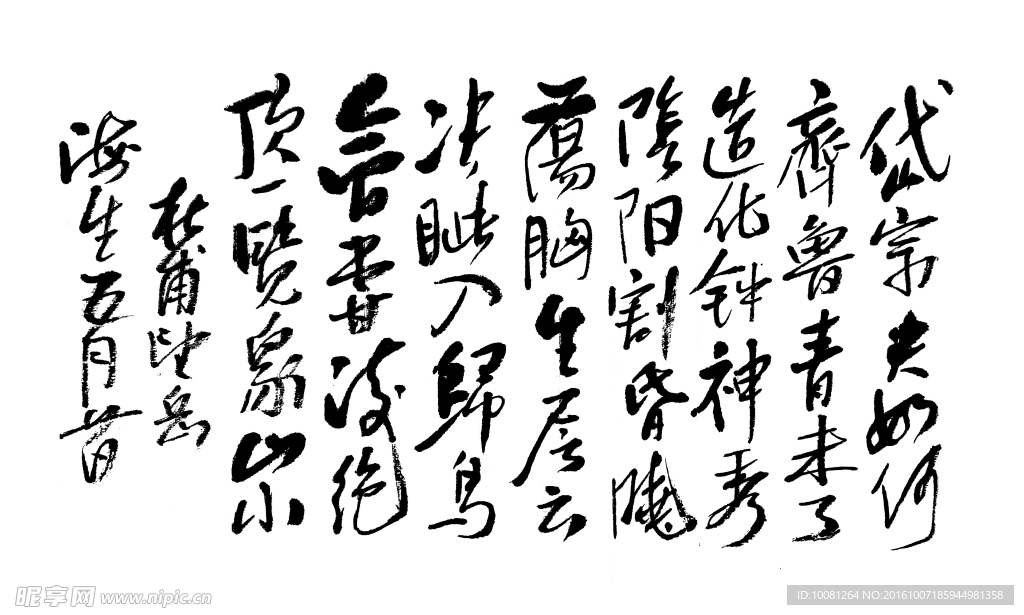 岱宗夫如何
齊魯青未了
造化钟神秀
陰阳割昏曉
蕩胸生层云
决眦入歸鸟
會當凌绝
顶一覽众山小
杜甫望岳
海生五月
昵享网 www.nipic.cn
ID:10081264 NO:20161007185944981358